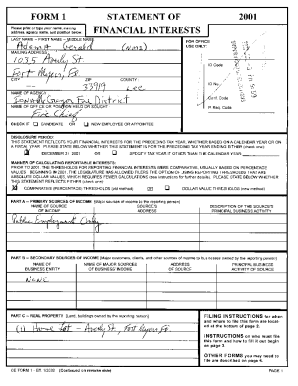 FORM 1 STATEMENT OF 2001
FINANCIAL INTERESTS
Please print or type your name, mailing
address, agency name, and position below:
FOR OFFICE
USE ONLY:
LAST NAME -- FIRST NAME -- MIDDLE NAME
Adams Gerald (NMI)
MAILING ADDRESS
1035 St
Fort Myers, Fl.
CITY ZIP COUNTY
33919 Lee
NAME OF AGENCY
Fire District
NAME OF OFFICE OR POSITION HELD OR SOUGHT
Fire Chief
CHECK IF CANDIDATE OR NEW EMPLOYEE OR APPOINTEE
ID Code
ID No.
Conf. Code
P. Req. Code
DISCLOSURE PERIOD:
THIS STATEMENT REFLECTS YOUR FINANCIAL INTERESTS FOR THE PRECEDING TAX YEAR, WHETHER BASED ON A CALENDAR YEAR OR ON
A FISCAL YEAR. PLEASE STATE BELOW WHETHER THIS STATEMENT IS FOR THE PRECEDING TAX YEAR ENDING EITHER (check one):
DECEMBER 31, 2001 OR SPECIFY TAX YEAR IF OTHER THAN THE CALENDAR YEAR:
MANNER OF CALCULATING REPORTABLE INTERESTS:
PRIOR TO 2001, THE THRESHOLDS FOR REPORTING FINANCIAL INTERESTS WERE COMPARATIVE, USUALLY BASED ON PERCENTAGE
VALUES. BEGINNING IN 2001, THE LEGISLATURE HAS ALLOWED FILERS THE OPTION OF USING REPORTING THRESHOLDS THAT ARE
ABSOLUTE DOLLAR VALUES, WHICH REQUIRES FEWER CALCULATIONS (see instructions for further details). PLEASE STATE BELOW WHETHER
THIS STATEMENT REFLECTS EITHER (check one):
COMPARATIVE (PERCENTAGE) THRESHOLDS (old method) OR DOLLAR VALUE THRESHOLDS (new method)
PART A -- PRIMARY SOURCES OF INCOME (Major sources of income to the reporting person)
NAME OF SOURCE SOURCE'S DESCRIPTION OF THE SOURCE'S
OF INCOME ADDRESS PRINCIPAL BUSINESS ACTIVITY
Public Employment Only
PART B -- SECONDARY SOURCES OF INCOME (Major customers, clients, and other sources of income to businesses owned by the reporting person)
NAME OF NAME OF MAJOR SOURCES ADDRESS PRINCIPAL BUSINESS
BUSINESS ENTITY OF BUSINESS' INCOME OF SOURCE ACTIVITY OF SOURCE
NONE
PART C -- REAL PROPERTY (Land, buildings owned by the reporting person)
(1) Home Lot - St, Fort Myers Fl.
FILING INSTRUCTIONS for when
and where to file this form are located
at the bottom of page 2.
INSTRUCTIONS on who must file
this form and how to fill it out begin
on page 3.
OTHER FORMS you may need to
file are described on page 6.
CE FORM 1 - Eff. 1/2002 (Continued on reverse side) PAGE 1